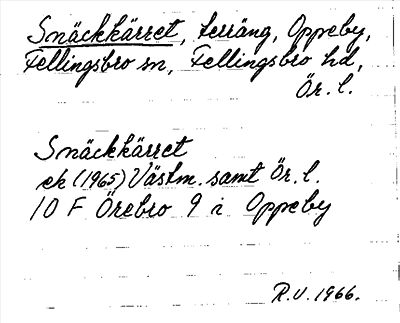 Snäckkärret, terräng, Oppeby,
Fellingsbro sn, Fellingsbro hd,
Ör. l.
Snäckkärret
ek (1965) Västm. samt Ör. l.
10 F Örebro 9 i Oppeby
R.U. 1966.